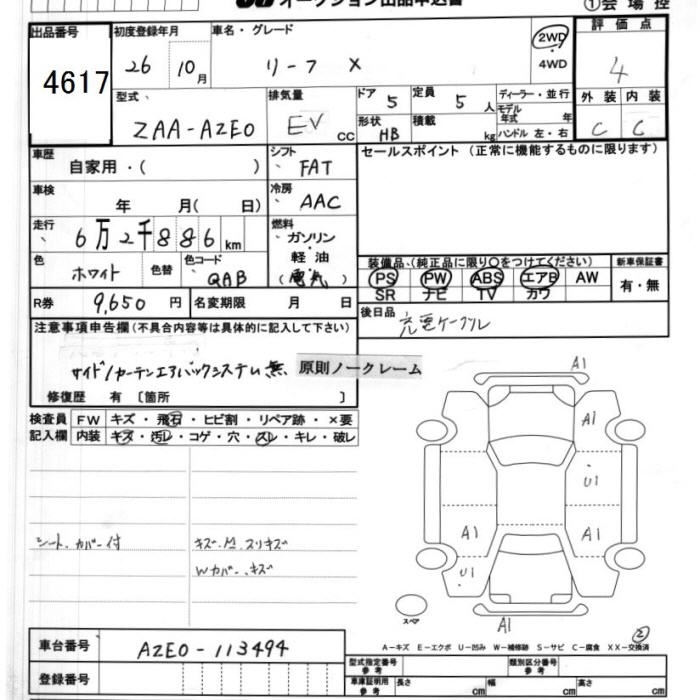 オークション出品申込書
①会場控
出品番号
4617
初度登録年月
26 10月
車名・グレード
リーフ X
2WD
4WD
評価点
4
型式
ZAA-AZE0
排気量
EV cc
ドア 5
定員 5人
形状 HB
積載 kg
ディーラー・並行
モデル年式 年
ハンドル 左・右
外装 内装
C C
車歴
自家用・( )
シフト
FAT
セールスポイント (正常に機能するものに限ります)
車検
年 月( 日)
冷房
AAC
走行
6万2千886km
燃料
ガソリン・軽油
(電気)
色
ホワイト
色替
色コード
QAB
装備品(純正品に限り○をつけてください)
新車保証書
PS PW ABS エアB AW
有・無
SR ナビ TV カワ
R券 9,650円
名変期限 月 日
後日品
充電ケーブル
注意事項申告欄(不具合内容等は具体的に記入して下さい)
サイド/カーテンエアバックシステム無、
原則ノークレーム
修復歴 有 〔箇所 〕
検査員記入欄
FW キズ・飛石・ヒビ割・リペア跡・×要
内装 キズ・汚レ・コゲ・穴・スレ・キレ・破レ
シートカバー付
キズ・凹・スリキズ
Wカバー、キズ
A1
A1
U1
A1
A1
U1
A1
スペア
②
A－キズ E－エクボ U－凹み W－補修跡 S－サビ C－腐食 XX－交換済
車台番号
AZE0-113494
登録番号
型式指定番号参考
類別区分番号参考
車庫証明用参考
長さ cm
幅 cm
高さ cm